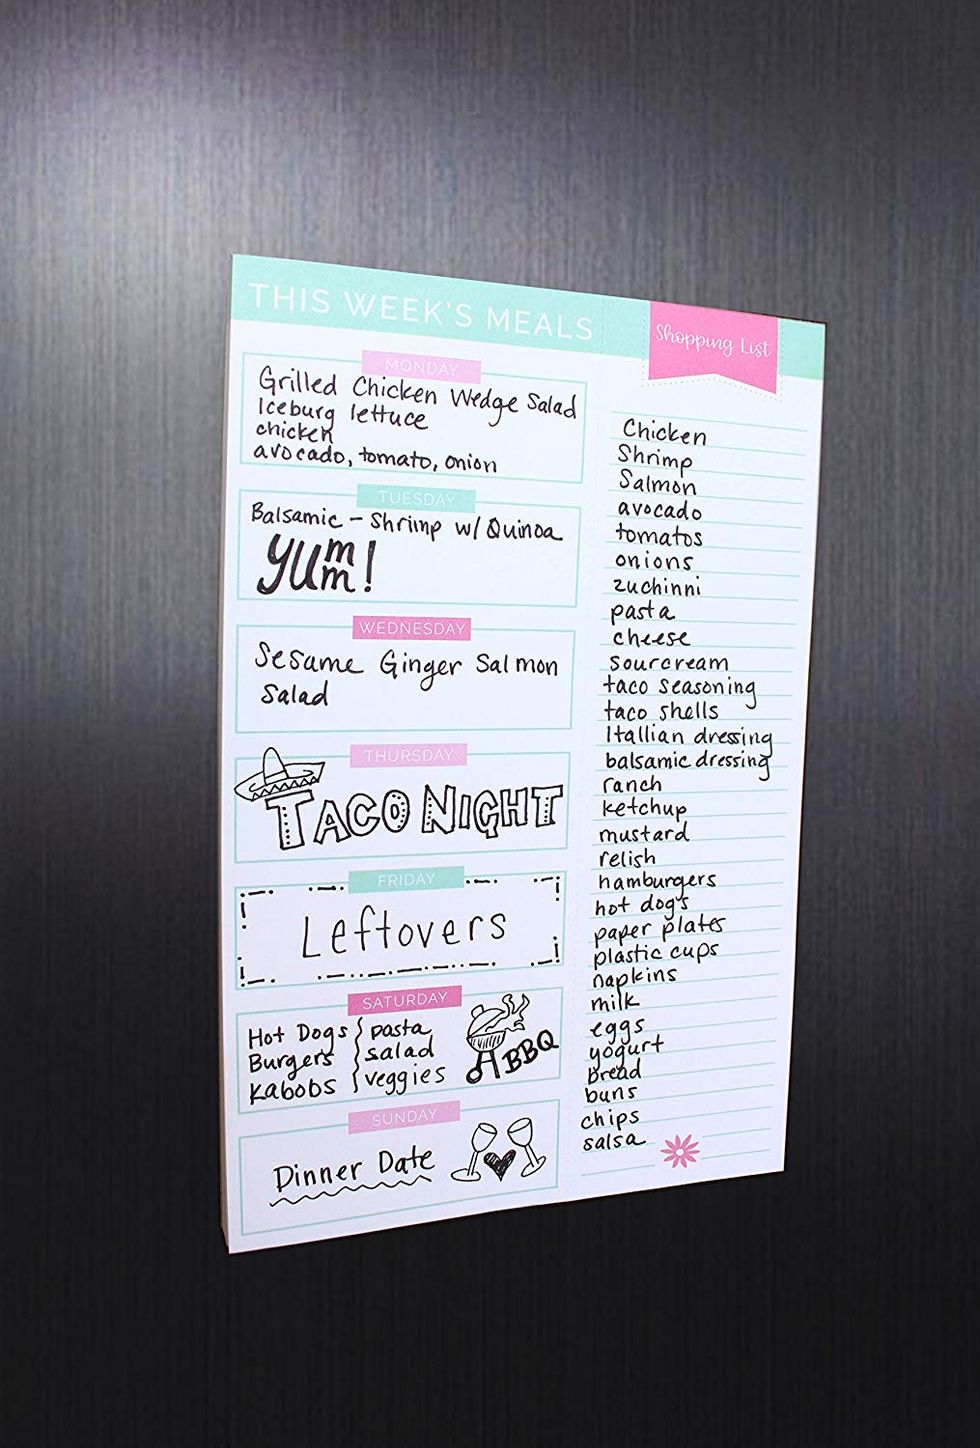 THIS WEEK'S MEALS
MONDAY
Grilled Chicken Wedge Salad
Iceburg lettuce
chicken
avocado, tomato, onion
TUESDAY
Balsamic - Shrimp w/ Quinoa
YUMM!
WEDNESDAY
Sesame Ginger Salmon
Salad
THURSDAY
TACO NIGHT
FRIDAY
Leftovers
SATURDAY
Hot Dogs } pasta
Burgers } salad
Kabobs } veggies
BBQ
SUNDAY
Dinner Date
Shopping List
Chicken
Shrimp
Salmon
avocado
tomatos
onions
zuchinni
pasta
cheese
sourcream
taco seasoning
taco shells
Itallian dressing
balsamic dressing
ranch
ketchup
mustard
relish
hamburgers
hot dogs
paper plates
plastic cups
napkins
milk
eggs
yogurt
bread
buns
chips
salsa